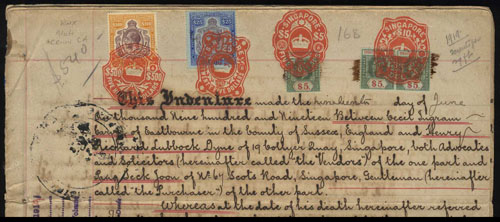 168
1919
SINGAPORE
SINGAPORE
SINGAPORE
$500
$25
$5
$5
$5
This Indenture made the nineteenth day of June
One thousand Nine hundred and Nineteen Between Cecil Ingram
of Eastbourne in the County of Sussex, England and Henry
Richard Lubbock Dyne of 19 Collyer Quay, Singapore, both Advocates
and Solicitors (hereinafter called "the Vendors") of the one part and
Seck Joon of No. 67 Scotts Road, Singapore, Gentleman (hereinafter
called "the Purchaser") of the other part.
Whereas at the date of his death hereinafter referred